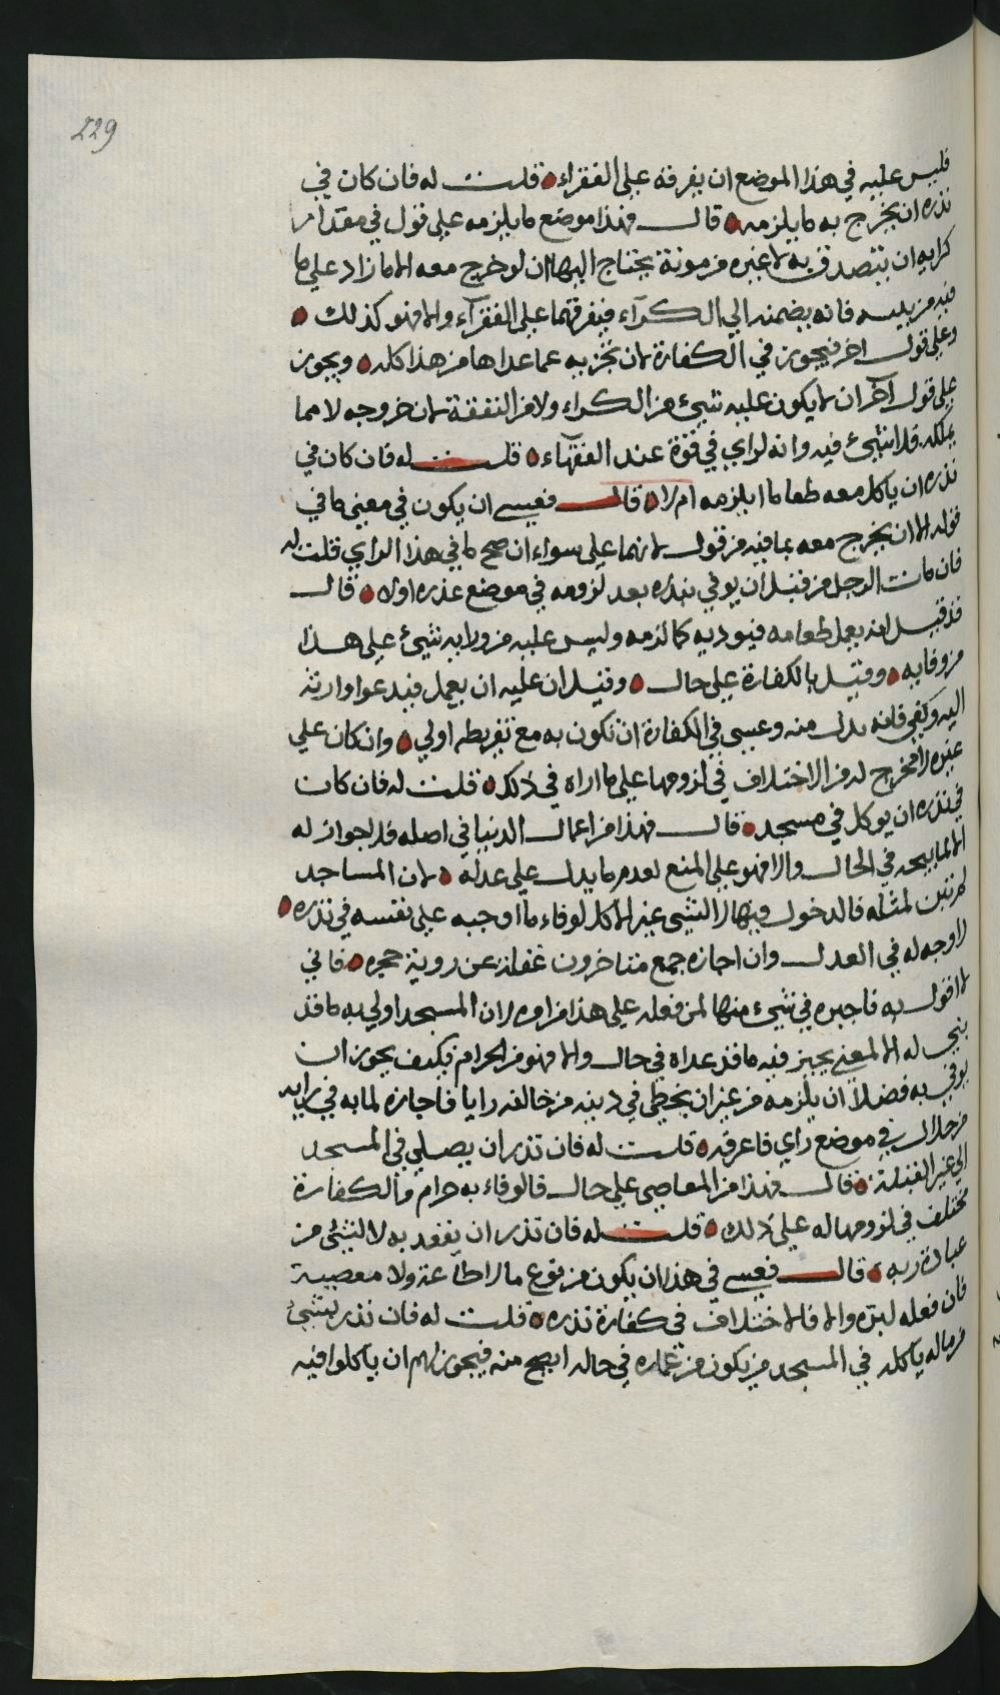 229
فليس عليه في هذا الموضع ان يفرقه على الفقراء قلت له فان كان في
نذره ان يخرج به ما يلزمه قال فهذا موضع ما يلزمه على قول في مقدار
كرايه ان يتصدق به لا غيره من مونة يحتاج اليها ان لو خرج معه الا ما زاد على ما
فيه من يلبسه فانه يضمنه الى الكرآء فيفرقهما على الفقرآء والا فهو كذلك
وعلى قول اخر فيجوز في الكفارة لان تجزيه عما عداها من هذا كله ويجوز
على قول آخر ان لا يكون عليه شيء من الكراء ولا من النفقة لان خروجه لا مما
يملكه فلا شيء فيه وانه لراي في قوة عند الفقهآء قلت له فان كان في
نذره ان ياكل معه طعاما ايلزمه ام لا قال فعسى ان يكون في معنى ما في
قوله الا ان يخرج معه بما فيه من قول لانهما على سواء ان صح ما في هذا الراي قلت له
فان مات الرجل من قبل ان يوفي بنذره بعد لزومه في موضع عذره اولا قال
فقد قيل انه يعمل طعامه فيوديه كما لزمه وليس عليه من ولايه شيء على هذا
من وفايه وقيل بالكفارة على حال وقيل ان عليه ان يعمل فيدعوا وارثه
اليه وكفى فانه بدل منه وعسى في الكفارة ان تكون به مع تفريطه اولى وان كان على
غيره لا مخرج له من الاختلاف في لزومها على ما اراه في ذلك قلت له فان كان
في نذره ان يوكل في مسجد قال فهذا من اعمال الدنيا في اصله فلا جواز له
الا لما يبيحه في الحال والا فهو على المنع لعدم ما يدل على عدله لان المساجد
لم تبن لمثله فالدخول فيها لا لشي غير الاكل لوفاء ما اوجبه على نفسه في نذره
لا وجه له في العدل وان اجازه جمع متاخرون غفلة عن روية حجره فاني
لا اقول به فاجيزه في شيء منها لمن فعله على هذا من امره لان المسجد اولى به ما قد
بني له الا لمعنى يجيز فيه ما قد عداه في حال والا فهو من الحرام فكيف يجوز ان
يوفي به فضلا ان يلزمه من غير ان يخطي في دينه من خالفه رايا فاجازه لما به في رايه
من حلال في موضع راي فاعرفه قلت له فان نذر ان يصلي في المسجد
الى غير القبلة قال فهذا من المعاصي على حال فالوفاء به حرام والكفارة
مختلف في لزومها له على ذلك قلت له فان نذر ان يقعد به لا لشيء من
عبادة ربه قال فعسى في هذا ان يكون من نوع ما لا طاعة ولا معصية
فان فعله لبره والا فالاختلاف في كفارة نذره قلت له فان نذر بشيء
من ماله ياكله في المسجد من يكون من عماره في حاله ايصح منه فيجوز لهم ان ياكلوا فيه